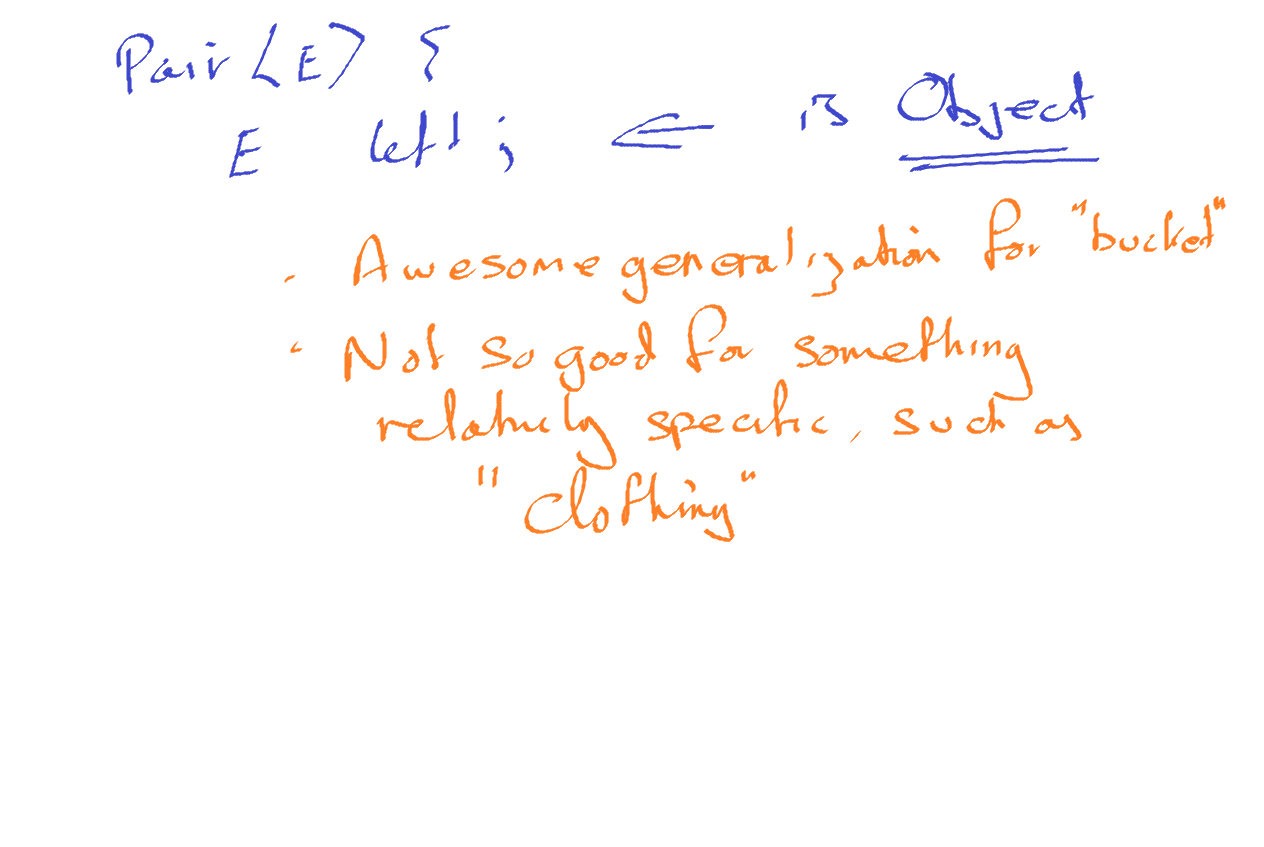 Pair <E> {
E left; ⇐ is Object
· Awesome generalization for "bucket"
· Not so good for something
relatively specific, such as
"clothing"